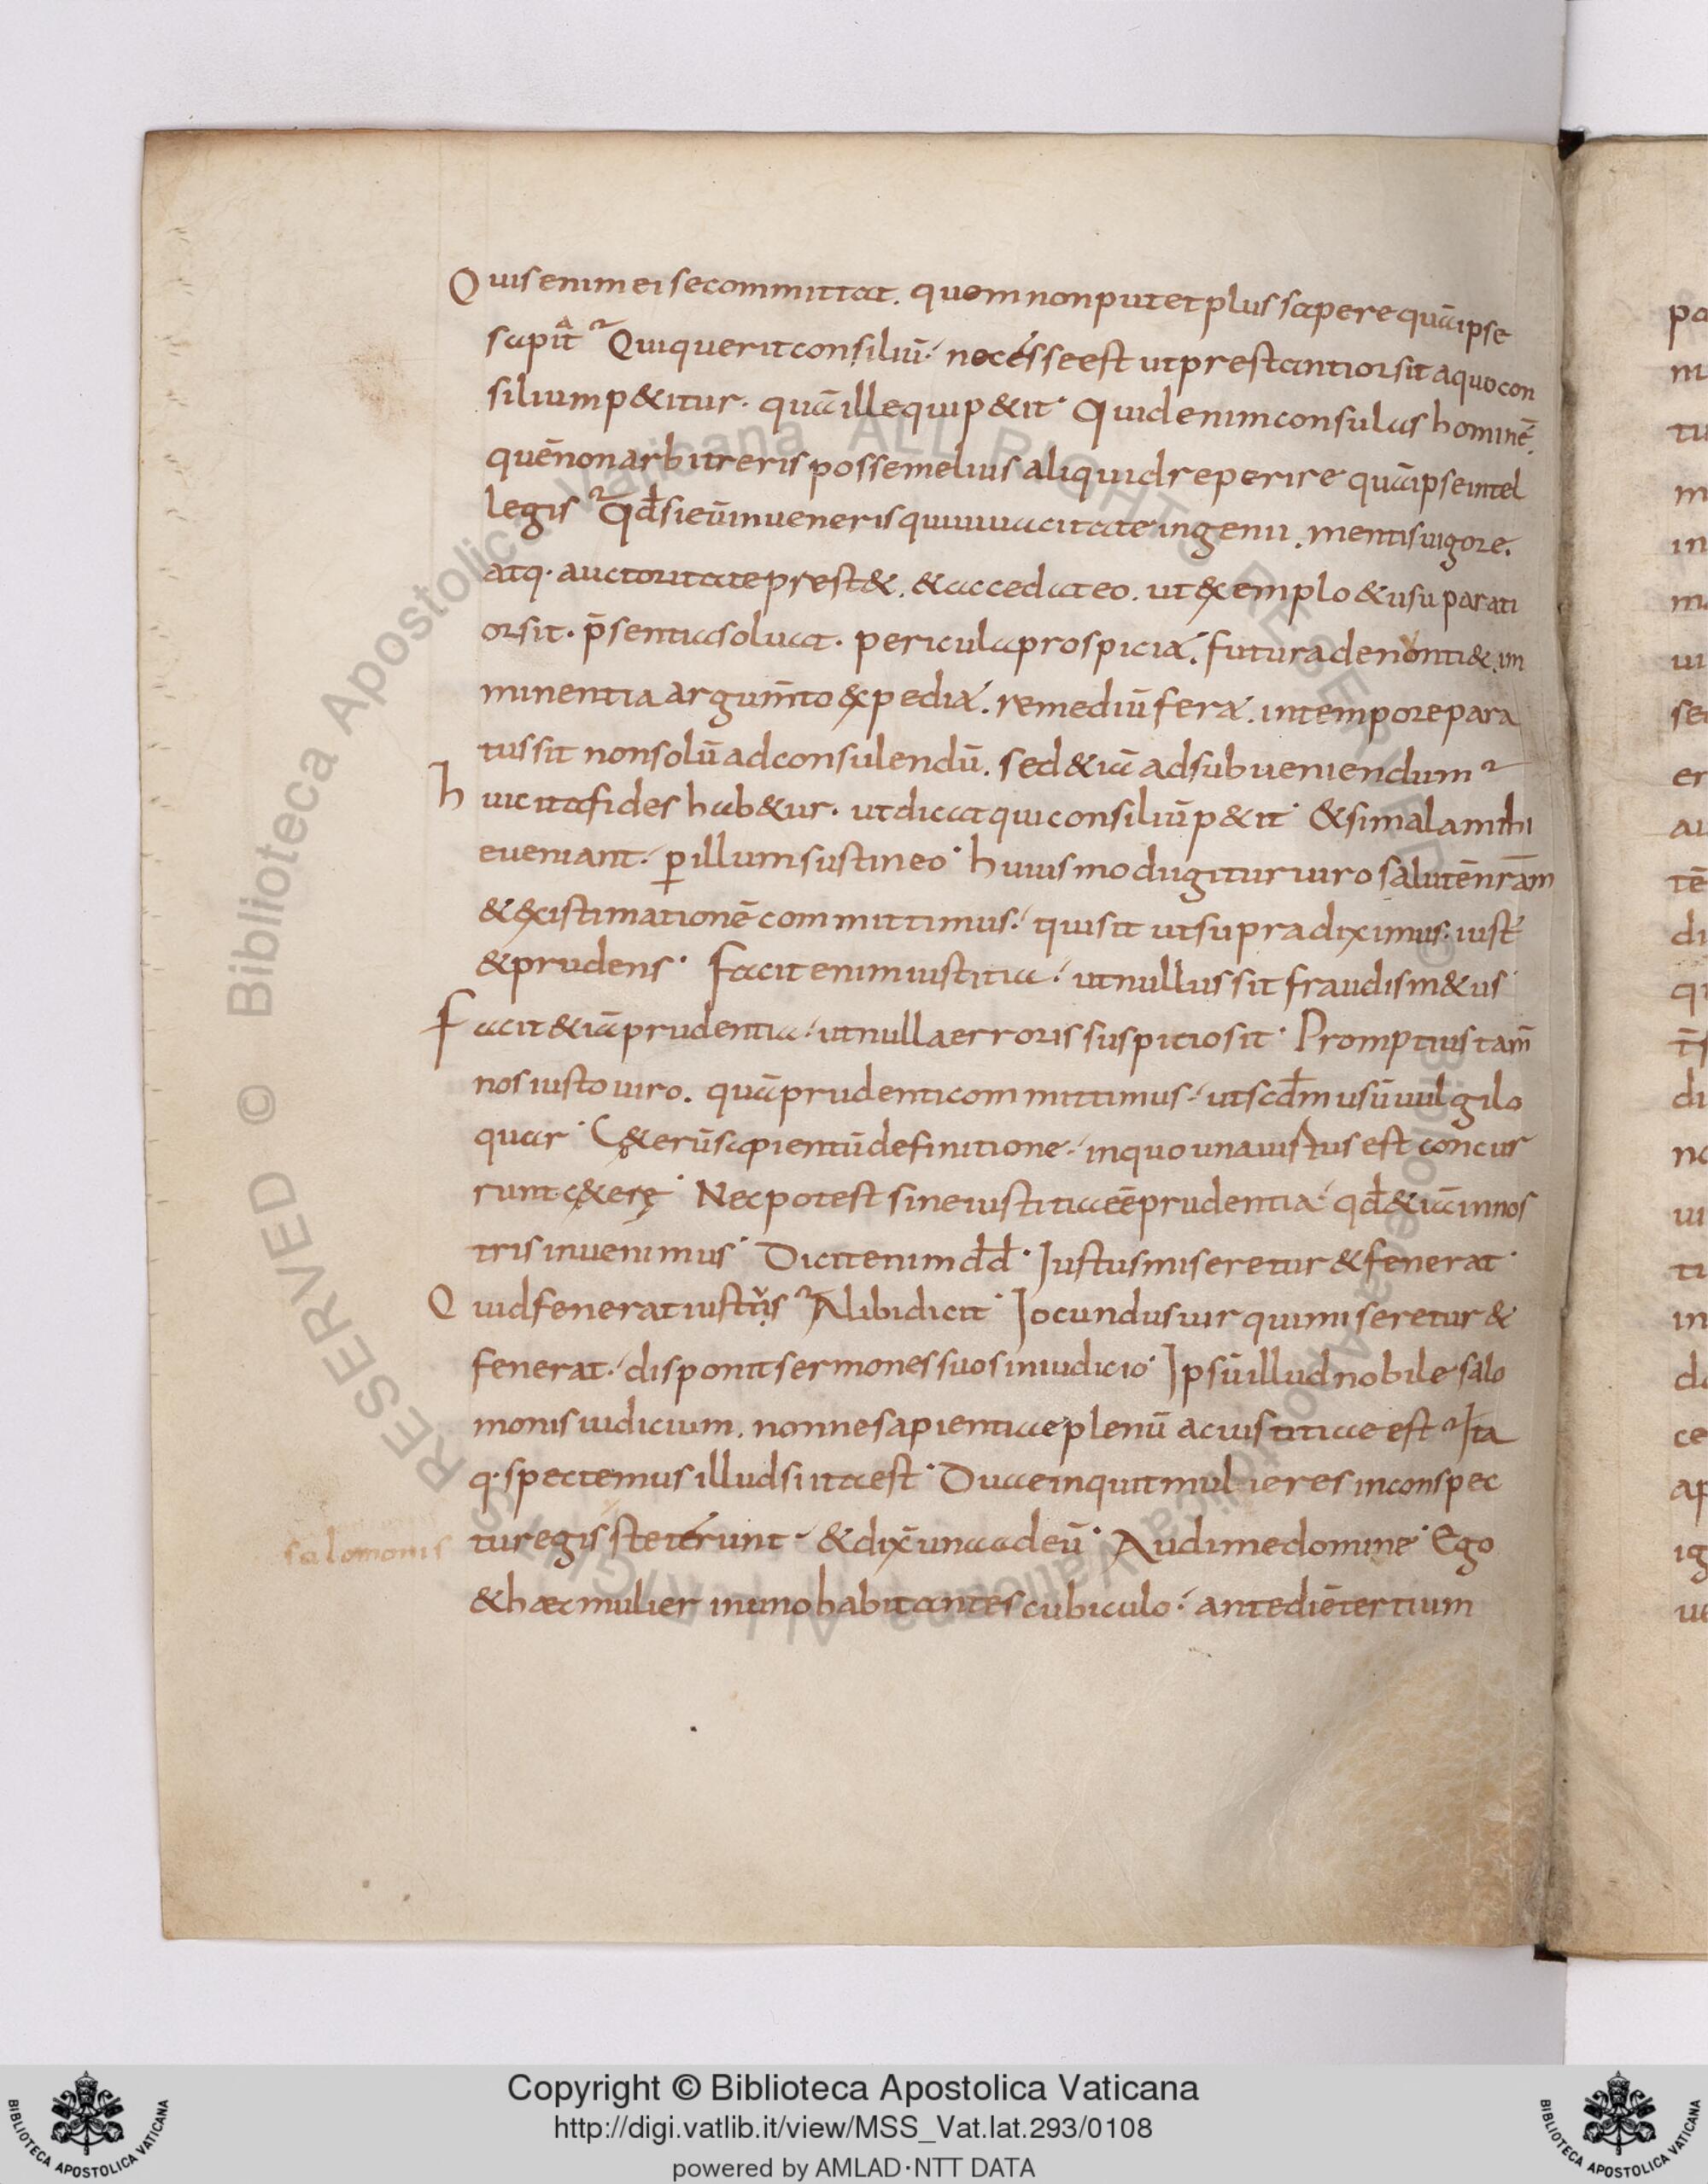 Quis enim ei se committat. quem non putet plus sapere quā ipse
sapiat? Qui querit consiliū necesse est ut prestantior sit a quo con
silium p&itur. quā ille qui p&it. Quid enim consulas hominē.
quē non arbitreris posse melius aliquid reperire quā ipse intel
legis? Qđ si eū inueneris qui uiuacitate ingenii. mentis uigore.
atq. auctoritate prest&. & accedat eo. ut &xemplo & usu parati
or sit. p̄sentia soluat. pericula prospiciat. futura denonti&. im
minentia argum̄to &xpediat. remediū ferat. in tempore para
tus sit non solū ad consulendū. sed &iā ad subueniendum?
huic ita fides hab&ur. ut dicat qui consiliū p&it. & si mala mihi
eueniant. p̄ illum sustineo. huiusmodi igitur uiro salutē nr̄am
& &xistimationē committimus. qui sit ut supra diximus. iust'
& prudens. Facit enim iustitia. ut nullus sit fraudis m&us.
Facit &iā prudentia. ut nulla erroris suspitio sit. Promptius tam̄
nos iusto uiro. quā prudenti committimus. ut scđm usū uulgi lo
quar. C&erū sapientū definitione. in quo una uirtus est concur
runt c&erę. Nec potest sine iustitia eē prudentia. qđ &iā in nos
tris inuenimus. Dicit enim đđ. Iustus miseretur & fenerat.
Quid fenerat iustus? Alibi dicit. Iocundus uir qui miseretur &
fenerat. disponit sermones suos in iudicio. Ipsū illud nobile salo
monis iudicium. nonne sapientiae plenū ac iustitiae est? Ita
q. spectemus illud si ita est. Duae inquit mulieres in conspec
tu regis steterunt. & dix̄ una ad eū. Audi me domine. Ego
salomonis
& haec mulier in uno habitantes cubiculo. ante diē tertium
© Biblioteca Apostolica Vaticana ALL RIGHTS RESERVED
© Biblioteca Apostolica Vaticana ALL RIGHTS RESERVED
Copyright © Biblioteca Apostolica Vaticana
http://digi.vatlib.it/view/MSS_Vat.lat.293/0108
powered by AMLAD·NTT DATA
BIBLIOTECA APOSTOLICA VATICANA
BIBLIOTECA APOSTOLICA VATICANA